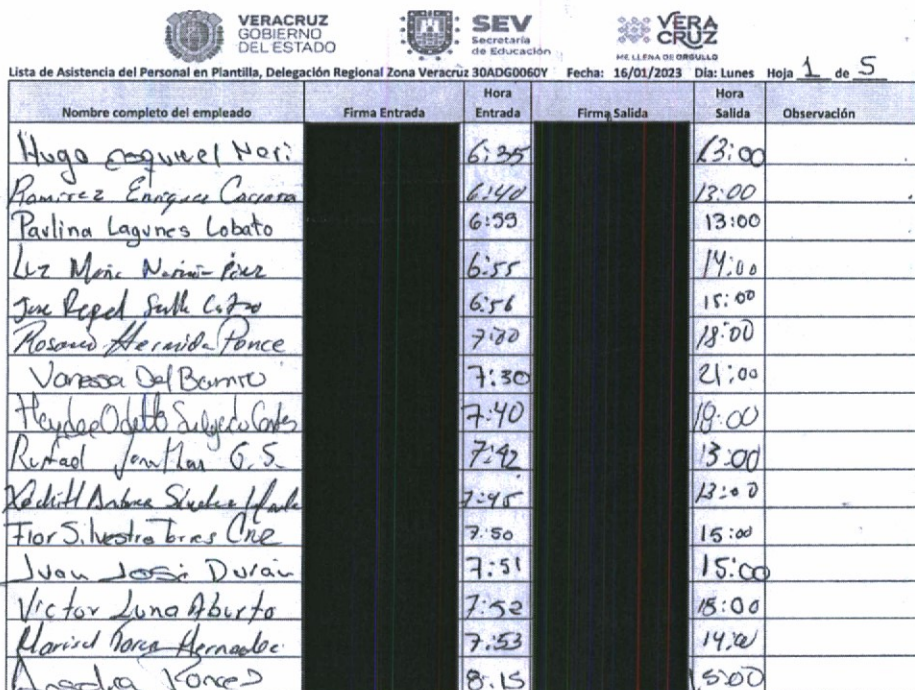 VERACRUZ
GOBIERNO
DEL ESTADO
SEV
Secretaría
de Educación
VERA
CRUZ
ME LLENA DE ORGULLO
Lista de Asistencia del Personal en Plantilla, Delegación Regional Zona Veracruz 30ADG0060Y Fecha: 16/01/2023 Día: Lunes Hoja 1 de 5
Nombre completo del empleado Firma Entrada Hora Entrada Firma Salida Hora Salida Observación
Hugo Esquivel Neri 6:35 13:00
Ramirez Enriquez 6:40 13:00
Paulina Lagunes Lobato 6:55 13:00
Luz 6:55 14:00
Jose 6:56 15:00
Rosario Hermida Ponce 7:00 18:00
Vanessa Del Barrio 7:30 21:00
Heydee Odette Salgado 7:40 18:00
Rafael Jonathan G.S. 7:42 13:00
Xochitl Andrea Sánchez 7:45 13:00
Flor Silvestre Torres Cruz 7:50 15:00
Juan José Durán 7:51 15:00
Victor Luna Aburto 7:52 15:00
Marisol Hernandez 7:53 14:00
8:15 15:00